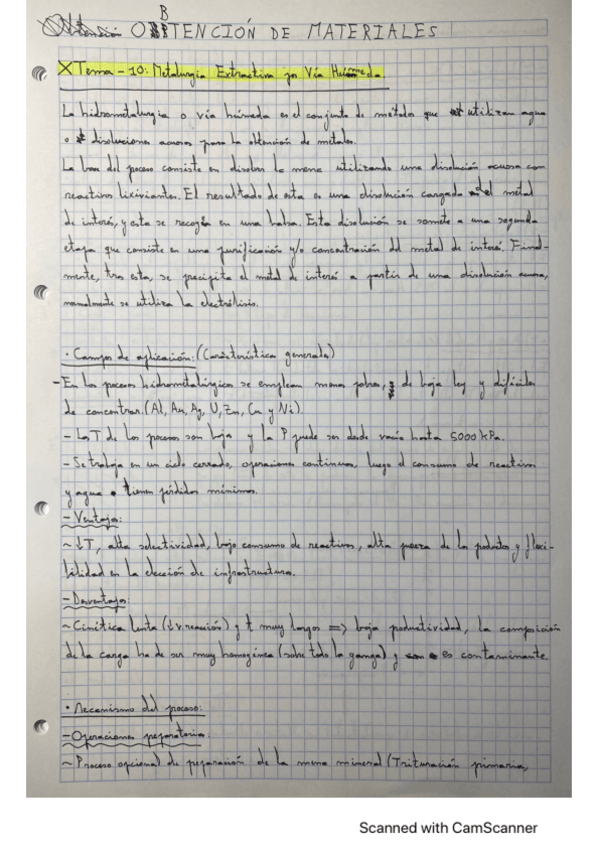 OBTENCIÓN DE MATERIALES
X Tema - 10: Metalurgia Extractiva por Vía Húmeda
La hidrometalurgia o vía húmeda es el conjunto de métodos que utilizan agua
o disoluciones acuosas para la obtención de metales.
La base del proceso consiste en disolver la mena utilizando una disolución acuosa con
reactivos lixiviantes. El resultado de esta es una disolución cargada del metal
de interés, y esta se recoge en una balsa. Esta disolución se somete a una segunda
etapa que consiste en una purificación y/o concentración del metal de interés. Final-
mente, tras esta, se precipita el metal de interés a partir de una disolución acuosa,
normalmente se utiliza la electrólisis.
· Campos de aplicación: (Característica generales)
- En los procesos hidrometalúrgicos se emplean menas pobres, de baja ley y difíciles
de concentrar. (Al, Au, Ag, U, Zn, Cu y Ni).
- La T de los procesos son baja y la P puede ser desde vacío hasta 5000 kPa.
- Se trabaja en un ciclo cerrado, operaciones continuas, luego el consumo de reactivos
y agua tienen pérdidas mínimas.
- Ventajas:
~ ↓T, alta selectividad, bajo consumo de reactivos, alta pureza de los productos y flexi-
bilidad en la elección de infraestructura.
- Desventajas:
~ Cinética lenta (↓v.reacción) y t muy largos => baja productividad, la composición
de la carga ha de ser muy homogénea (sobre todo la ganga) y es contaminante
· Mecanismo del proceso:
- Operaciones preparatorias:
~ Proceso opcional de preparación de la mena mineral (Trituración primaria,
Scanned with CamScanner